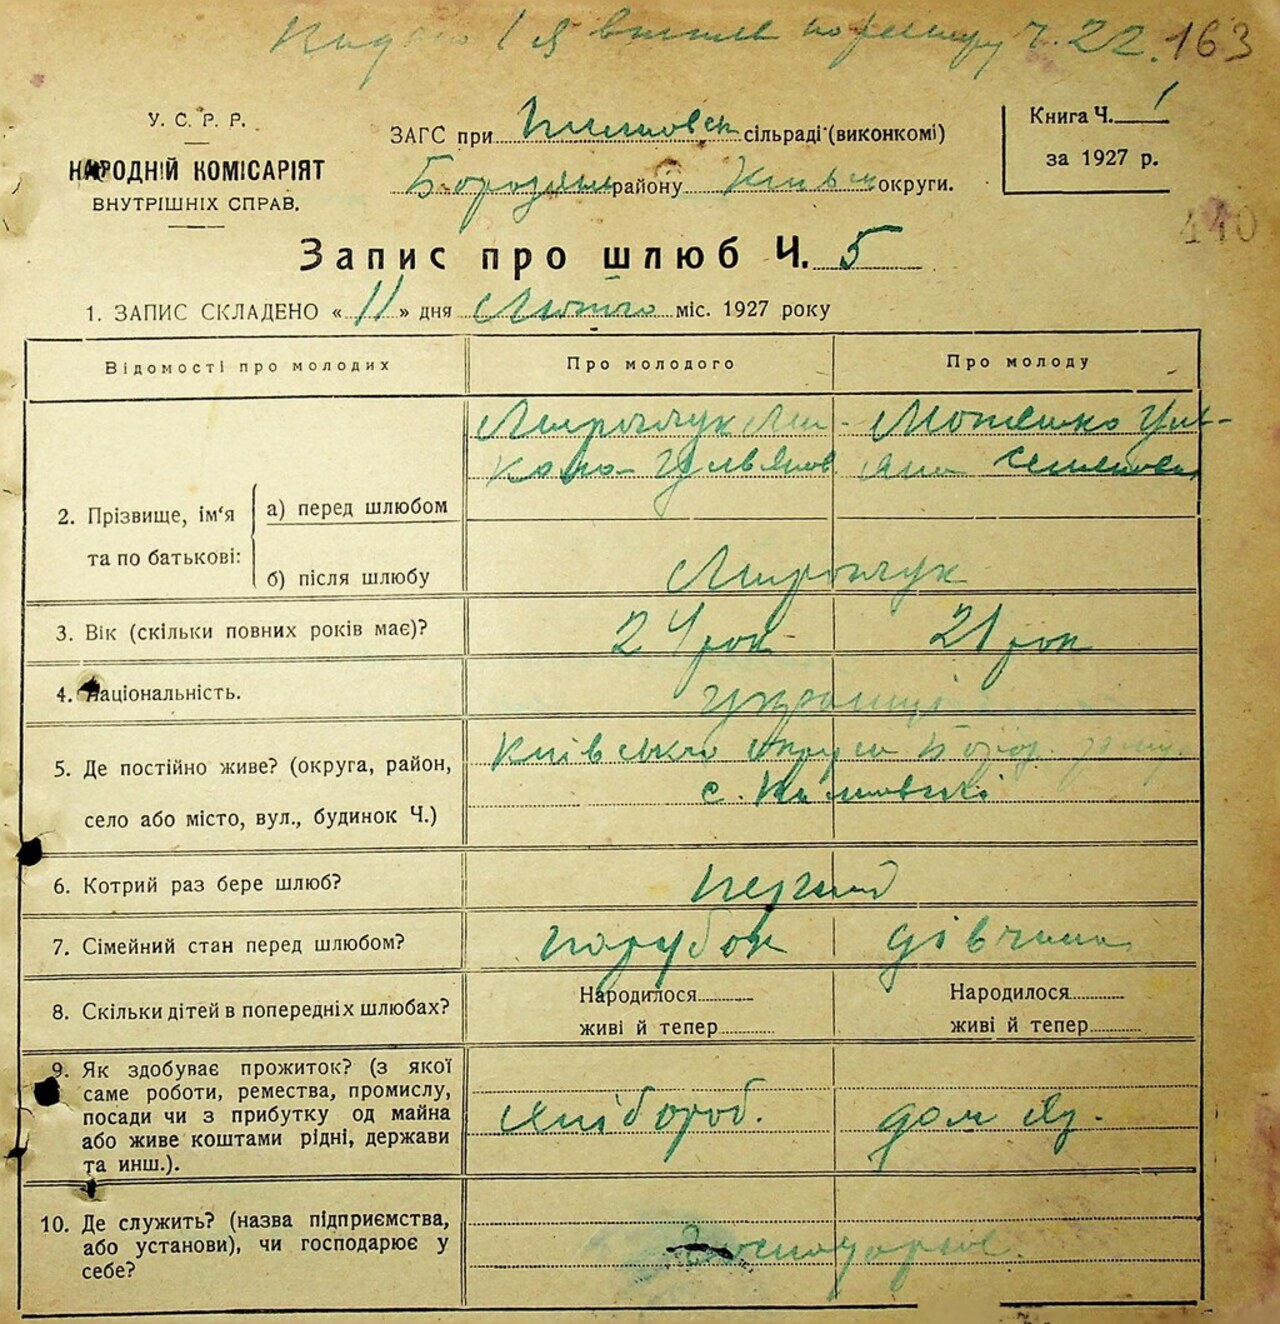 ч. 22. 163
У. С. Р. Р.
НАРОДНІЙ КОМІСАРІЯТ
ВНУТРІШНІХ СПРАВ.
ЗАГС при сільраді (виконкомі)
району округи.
Книга Ч. 1
за 1927 р.
440
Запис про шлюб Ч. 5
1. ЗАПИС СКЛАДЕНО « 11 » дня Лютого міс. 1927 року
Відомості про молодих Про молодого Про молоду
Мирончук Ми- Мотешко Уль-
яна
2. Прізвище, ім‘я та по батькові:
а) перед шлюбом
б) після шлюбу Мирончук
3. Вік (скільки повних років має)? 24 рок 21 рок
4. Національність. українці
5. Де постійно живе? (округа, район, Київської округи
село або місто, вул., будинок Ч.) с.
6. Котрий раз бере шлюб? перший
7. Сімейний стан перед шлюбом? парубок дівчина
8. Скільки дітей в попередніх шлюбах? Народилося Народилося
живі й тепер живі й тепер
9. Як здобуває прожиток? (з якої
саме роботи, ремества, промислу,
посади чи з прибутку од майна хлібороб. дом
або живе коштами рідні, держави
та инш.).
10. Де служить? (назва підприємства,
або установи), чи господарює у господарює.
себе?